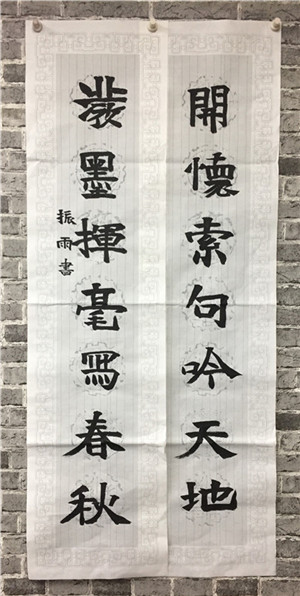 開懷索句吟天地
潑墨揮毫寫春秋
振雨書